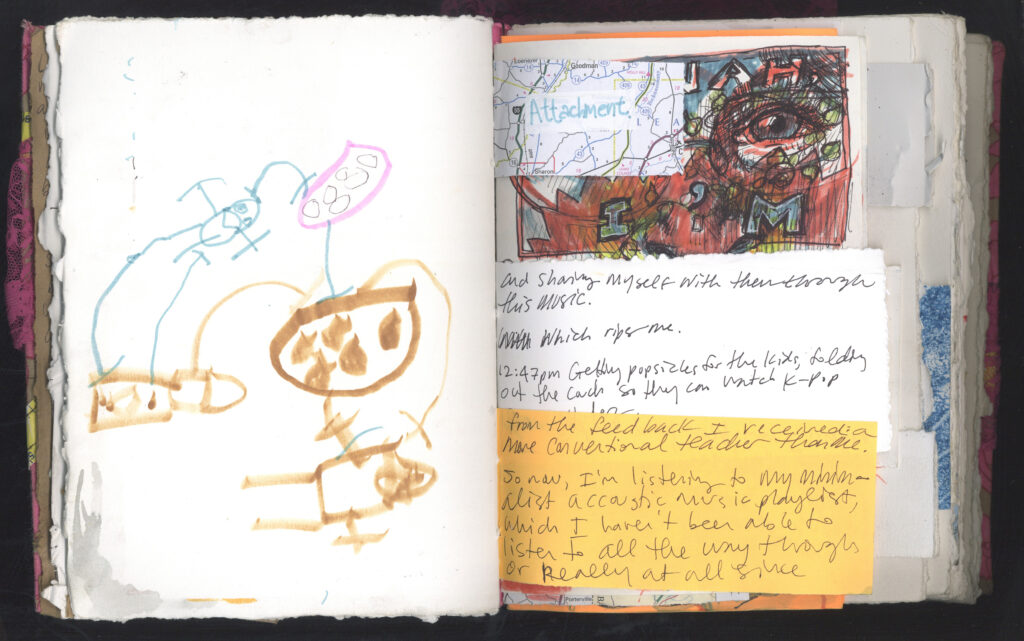 Goodman
Attachment.
L E A
Sharon
JAH
I'M
and sharing myself with them through
this music.
Which rips me.
12:47pm Getting popsicles for the kids, folding
out the couch so they can watch K-pop
from the feedback I received: a
more conventional teacher than me.
So now, I'm listening to my minim-
alist accoustic music playlist,
which I haven't been able to
listen to all the way through
or really at all since
Porterville